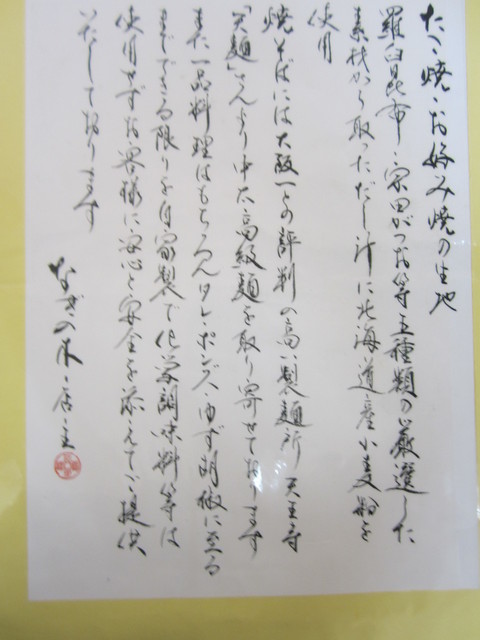 たこ焼・お好み焼の生地
羅臼昆布・宗田がつお等五種類の厳選した
素材から取っただし汁に北海道産小麦粉を
使用
焼そばには大阪一との評判の高い製麺所天王寺
「天麺」さんより中太高級麺を取り寄せております
また一品料理はもちろんタレ・ポンズ・ゆず胡椒に至る
までできる限りを自家製で化学調味料等は
使用せずお客様に安心と安全を添えてご提供
いたしております
なぎの木 店主